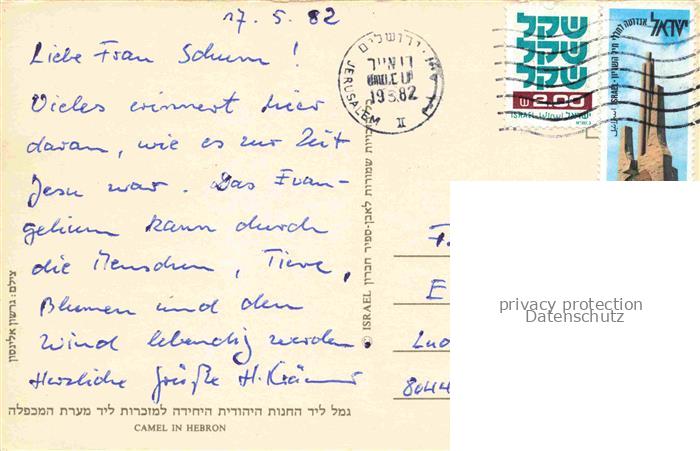 17. 5. 82
Liebe Frau Schumm !
Vieles erinnert hier
daran, wie es zur Zeit
Jesu war. Das Evan-
gelium kann durch
die Menschen, Tiere,
Blumen und den
Wind lebendig werden
Herzliche Grüße H. Krämer
גמל ליד החנות היהודית היחידה למזכרות ליד מערת המכפלה
CAMEL IN HEBRON
צילם: גרשון אלינסון
כל הזכויות שמורות לאבן-ספיר חברון ISRAEL ©
ירושלים
JERUSALEM
דואר אויר
82
II
שקל
שקל
שקל
ש 2.00
ISRAEL ישראל
ישראל
ISRAEL
F.
E
Lud
8044
privacy protection
Datenschutz